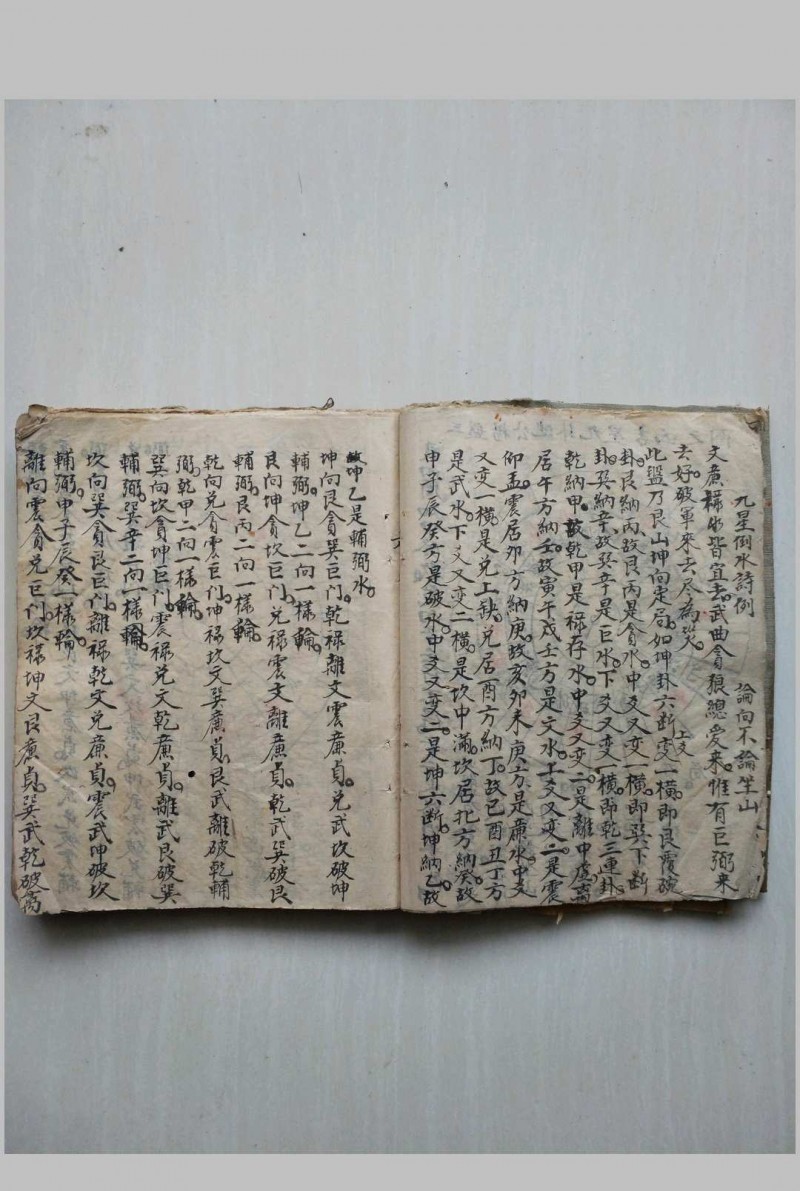 九星倒水詩例 論向不論坐山
文廉祿水皆宜去武曲貪狼總愛來惟有巨弼來
去好破軍來去尽為災
此盤乃艮山坤向定局如坤卦六斷变上爻一橫即艮覆碗
卦艮納丙故艮丙是貪水中爻又变一橫即巽下斷
卦巽納辛故巽辛是巨水下爻又变一橫即乾三連卦
乾納甲故乾甲是祿存水中爻又变二是離中虛离
居午方納壬故寅午戌壬方是文水上爻又变二是震
仰盂震居卯方納庚故亥卯未庚方是廉水中爻
又变一橫是兌上缺兌居酉方納丁故巳酉丑丁方
是武水下爻又变二橫是坎中滿坎居北方納癸故
申子辰癸方是破水中爻又变二是坤六斷坤納乙故
故坤乙是輔弼水
坤向艮貪巽巨門乾祿離文震廉貞兌武坎破坤
輔弼坤乙二向一樣輪
艮向坤貪坎巨門兌祿震文離廉貞乾武巽破艮
輔弼艮丙二向一樣輪
乾向兌貪震巨門坤祿坎文巽廉貞艮武離破乾輔
弼乾甲二向一樣輪
巽向坎貪坤巨門震祿兌文乾廉貞離武艮破巽
輔弼巽辛二向一樣輪
坎向巽貪艮巨門離祿乾文兌廉貞震武坤破坎
輔弼申子辰癸一樣輪
離向震貪兌巨門坎祿坤文艮廉貞巽武乾破离